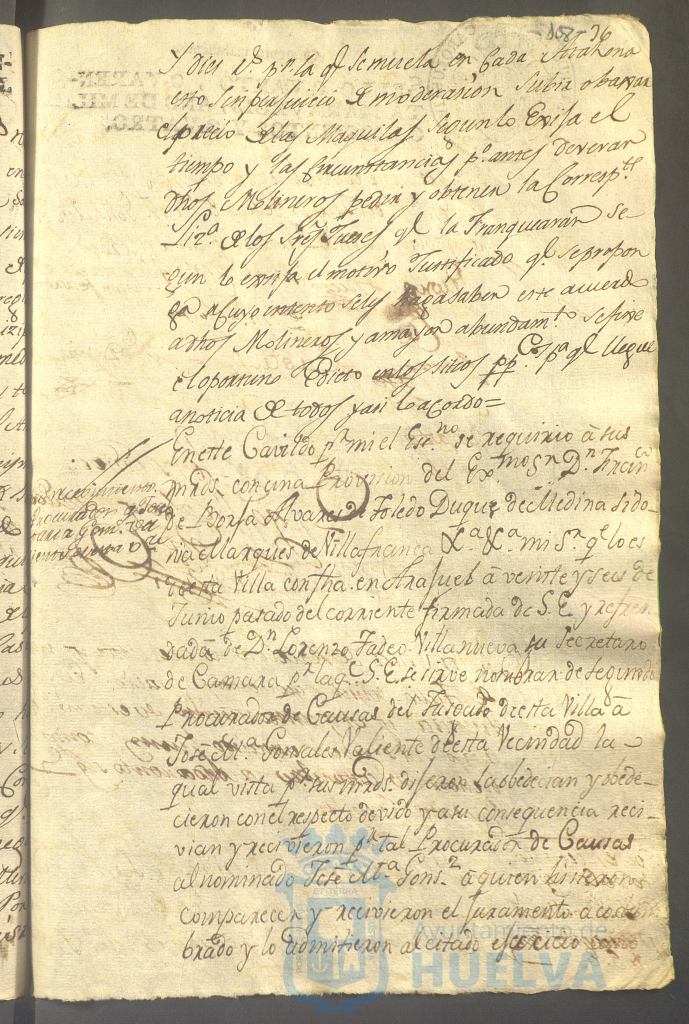 158 - 36
Y dies rs. pr. la qe. se muela en Cada Atahona
esto sin perjuicio de moderasion subir o baxar
el precio de las Maquilas segun lo Exija el
tiempo y las circunstancias pr. antes deveran
dhos Molineros pedir y obtener la Correspte.
Liza. de los sres. Jueses qe. la Franquearan se
gun lo exsija el motivo Justificado qe. se propon
ga a cuyo intento se les haga saber este acuerdo
a dhos Molineros y a mayor abundamto. se fixe
el oportuno Edicto en los sitios pp.cos pa. qe. llegue
a noticia de todos y asi lo acordo=
En este Cavildo pr. mi el Esno. se requirio â sus
mrds. con una Provision del Exmo. Sr. Dn. Franco.
de Borja Alvares de Toledo Duque de Medina Sido
nia Marques de Villafranca &a. &a. mi Sr. qe. lo es
de esta Villa con fha. en Aranjuez â veinte y seis de
Junio pasado del corriente firmada de S.E. y refren
dada de Dn. Lorenzo Tadeo Villanueva su Secretaro
de Camara pr. la qe. S.E. se sirve nombrar de segundo
Procurador de Causas del Jusgado de esta Villa â
Jose Ma. Gonsales Valiente de esta Vecindad la
qual vista pr. sus mrds. dijeron la obedecian y obede-
cieron con el respecto devido y a su consequencia reci-
vian y recivieron pr. tal Procurador de Causas
al nominado Jose Ma. Gonsz. â quien hisieron
comparecer y recivieron el juramento acostum
brado y lo admitieron al citado exercicio
Recevimiento
Procurador
Ayuntamiento de
HUELVA